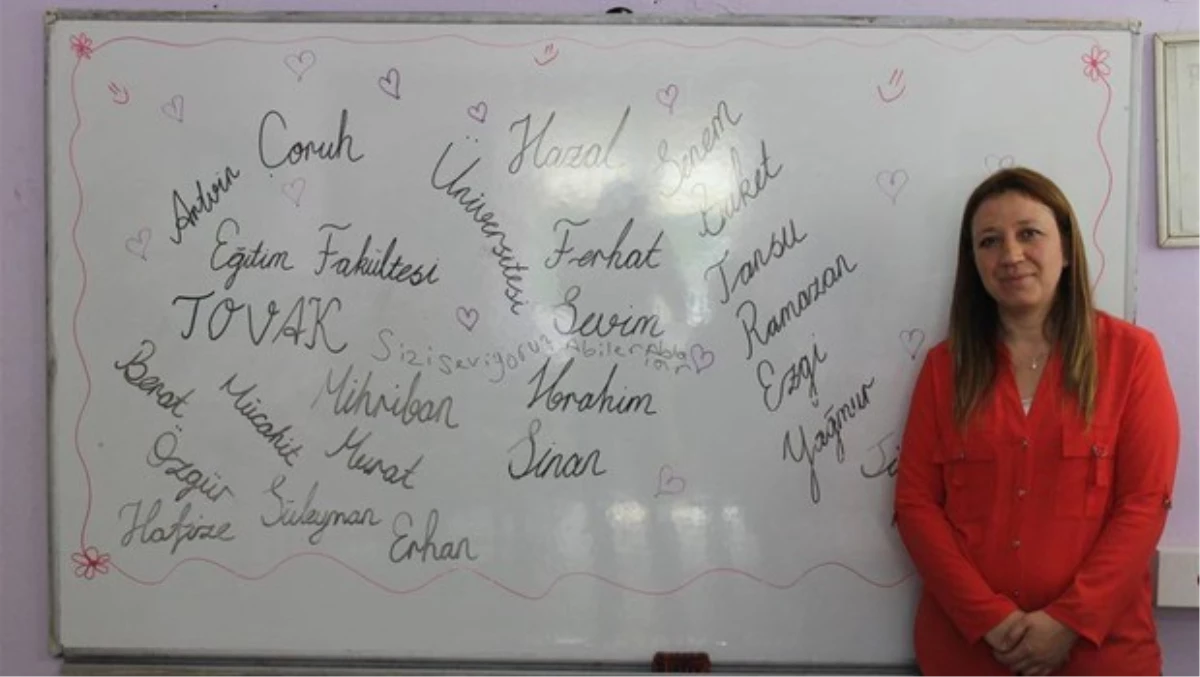 Artvin Çoruh Üniversitesi
Eğitim Fakültesi
TOVAK
Sizi seviyoruz Abiler Abla
Hazal
Senem
Buket
Ferhat
Tansu
Sevim
Ramazan
İbrahim
Ezgi
Sinan
Yağmur
Berat
Mücahit
Mihriban
Özgür
Murat
Hafize
Süleyman
Erhan